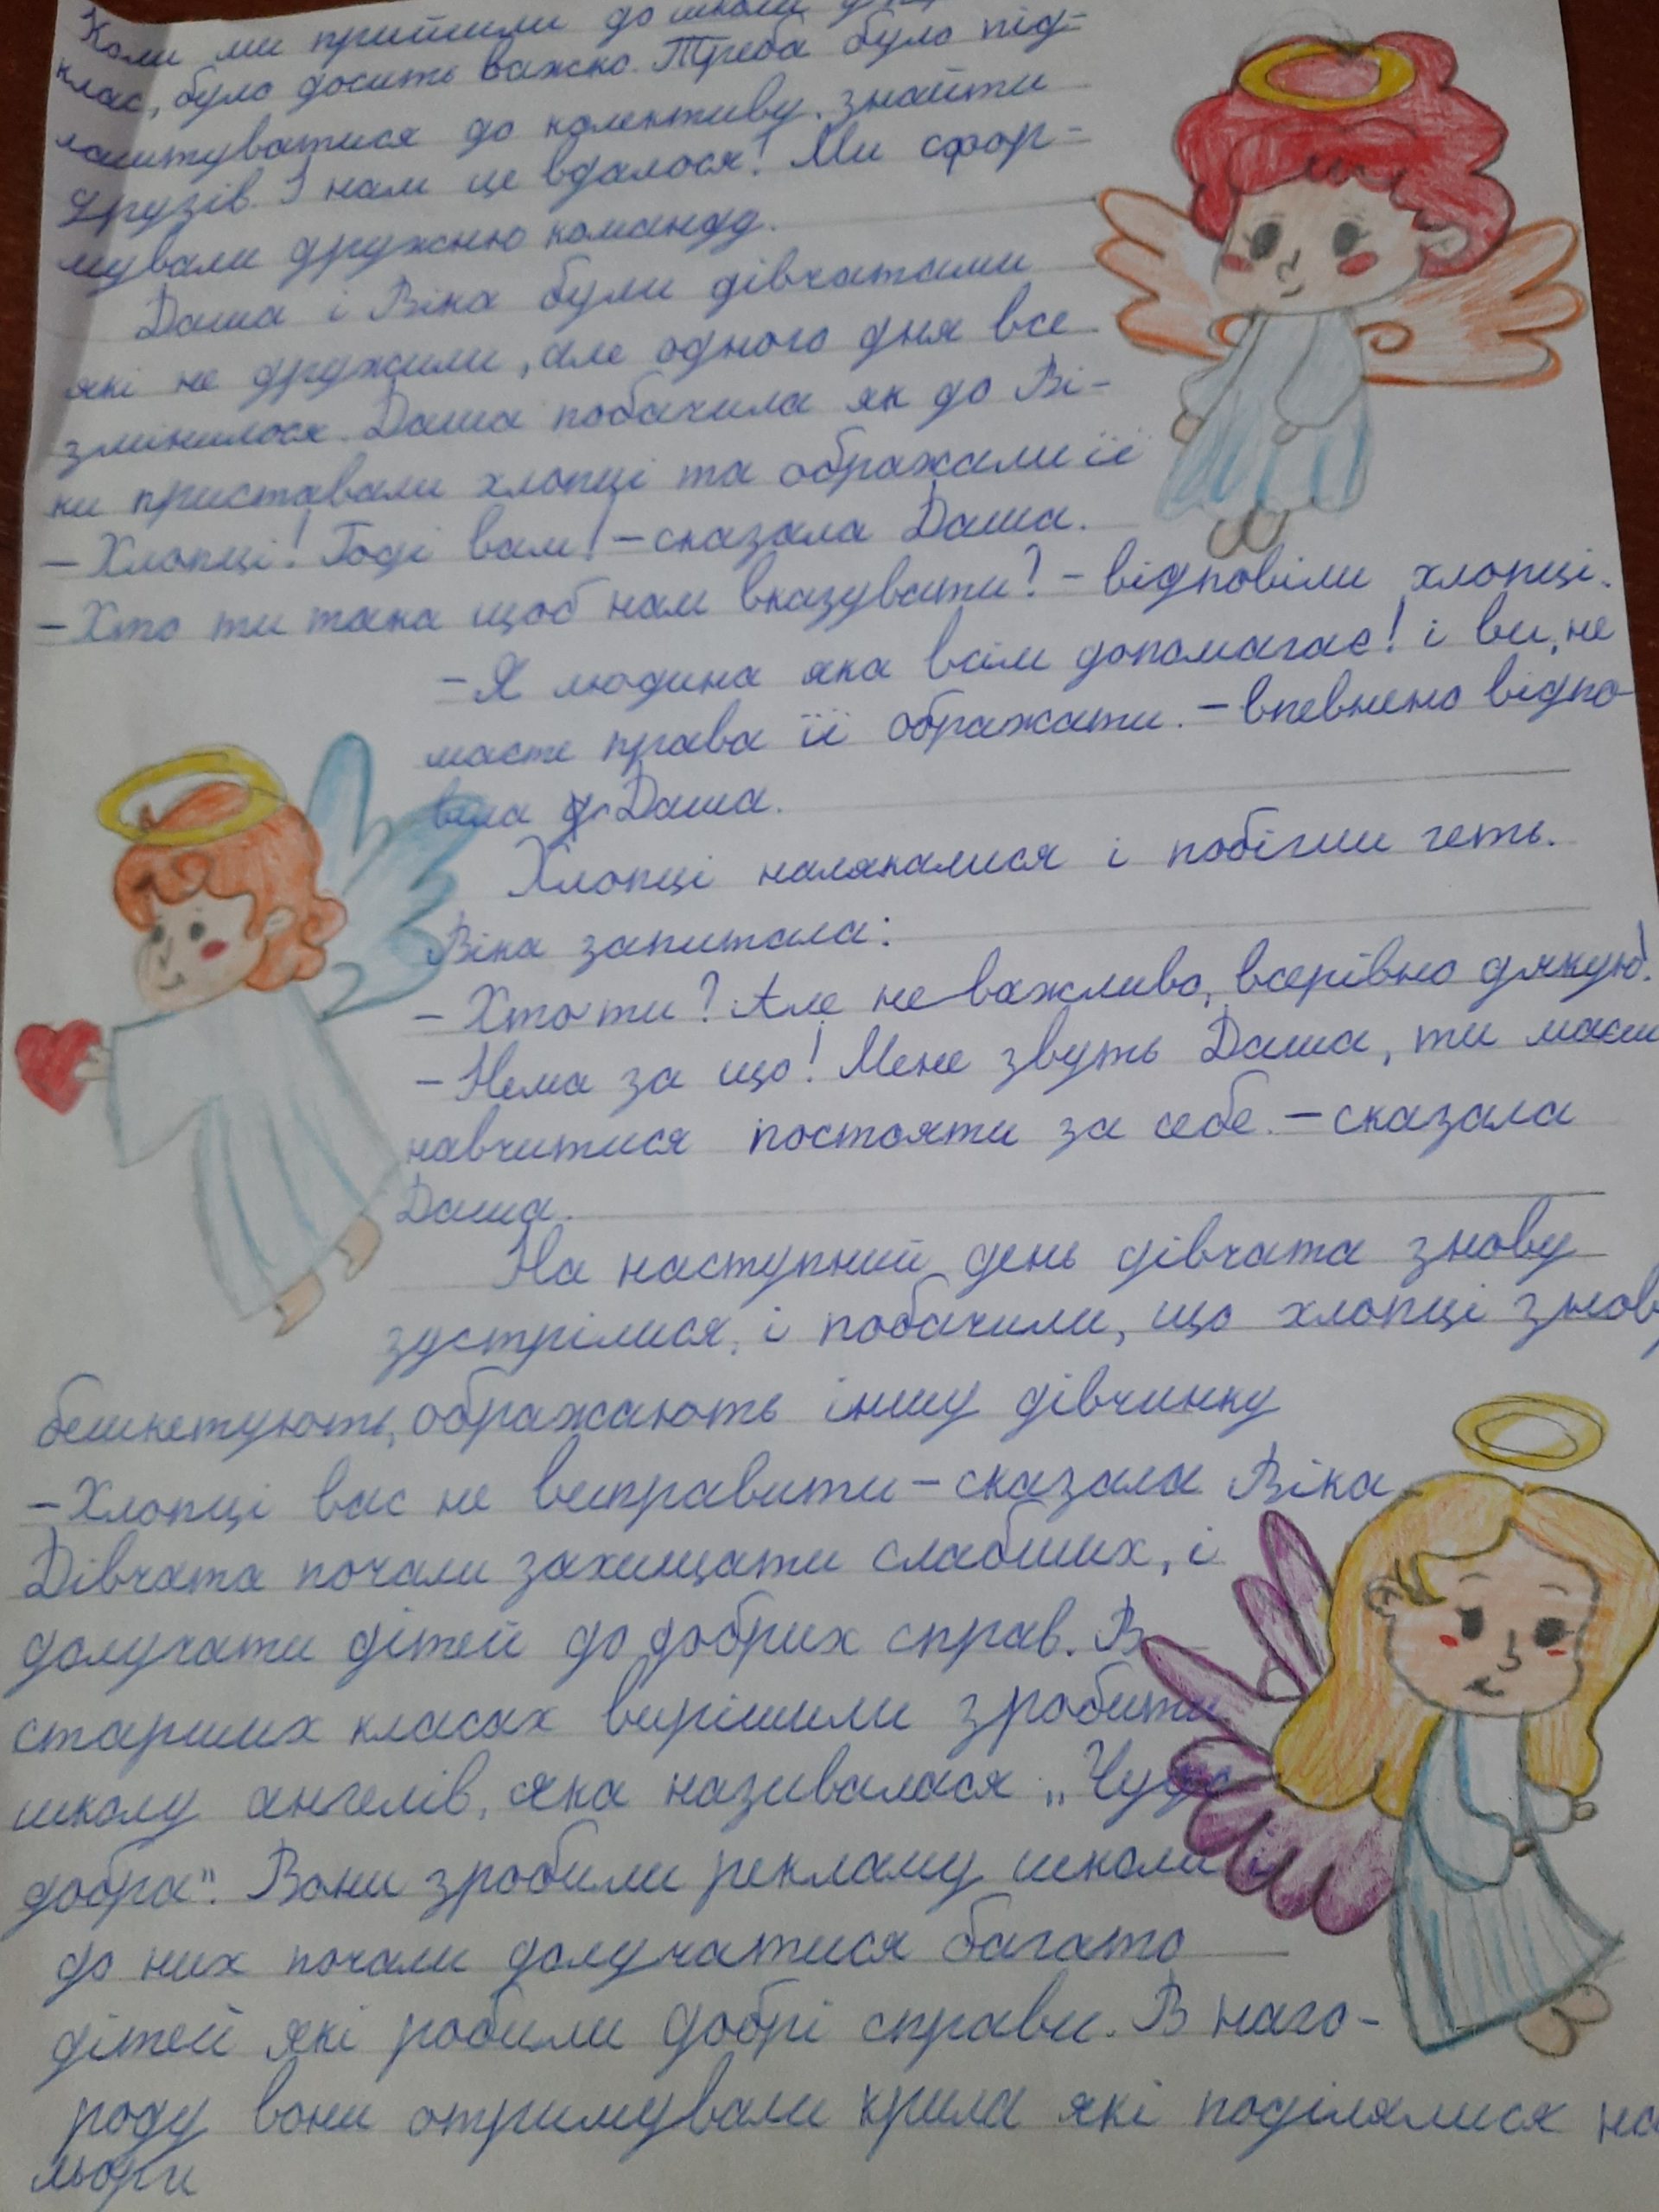 Коли ми прийшли до школи у
клас, було досить важко. Треба було під-
лаштуватися до колективу, знайти
друзів. І нам це вдалося! Ми сфор-
мували дружню команду.
Даша і Віка були дівчатами
які не дружили, але одного дня все
змінилося. Даша побачила як до Ві-
ки приставали хлопці та ображали її
- Хлопці! Годі вам! - сказала Даша.
- Хто ти така щоб нам вказувати? - відповіли хлопці.
- Я людина яка всім допомагає! і ви, не
маєте права її ображати. - впевнено відпо-
віла Даша.
Хлопці налякалися і побігли геть.
Віка запитала:
- Хто ти? Але не важливо, всерівно дякую!
- Нема за що! Мене звуть Даша, ти маєш
навчитися постояти за себе. - сказала
Даша.
На наступний день дівчата знову
зустрілися, і побачили, що хлопці знову
бешкетують, ображають іншу дівчинку
- Хлопці вас не виправити - сказала Віка.
Дівчата почали захищати слабших, і
долучати дітей до добрих справ. В
старших класах вирішили зробити
школу ангелів, яка називалася „Чудо
добра". Вони зробили рекламу школи і
до них почали долучатися багато
дітей які робили добрі справи. В наго-
роду вони отримували крила які поділялися на
льори